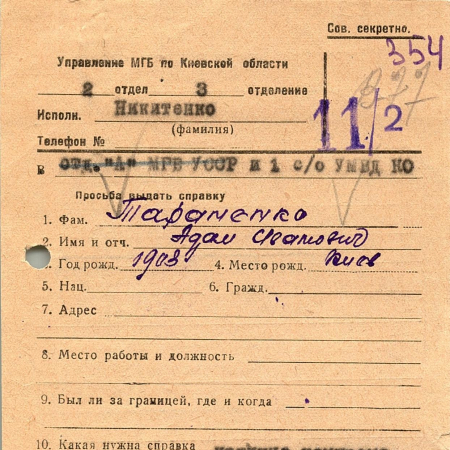 Сов. секретно.
354
377
Управление МГБ по Киевской области
2 отдел 3 отделение
Исполн. Никитенко
(фамилия)
11/2
Телефон №
В отд. "А" МГБ УССР и 1 с/о УМВД КО
Просьба выдать справку
1. Фам. Тараненко
2. Имя и отч. Адам Иванович
Год рожд. 1903 4. Место рожд. Киев
5. Нац. 6. Гражд.
7. Адрес
8. Место работы и должность
9. Был ли за границей, где и когда
10. Какая нужна справка